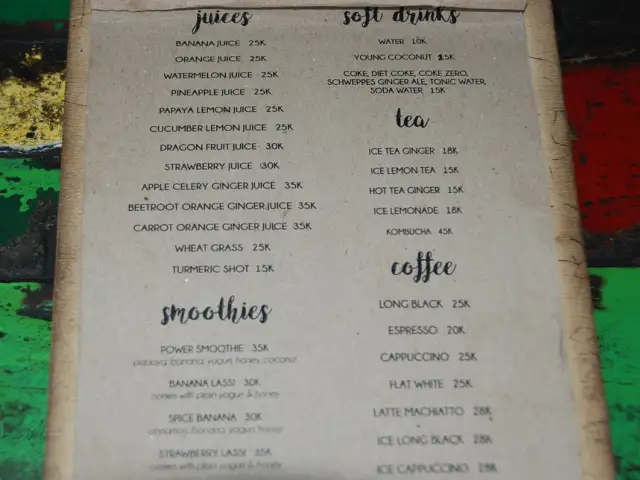 juices
BANANA JUICE 25K
ORANGE JUICE 25K
WATERMELON JUICE 25K
PINEAPPLE JUICE 25K
PAPAYA LEMON JUICE 25K
CUCUMBER LEMON JUICE 25K
DRAGON FRUIT JUICE 30K
STRAWBERRY JUICE 30K
APPLE CELERY GINGER JUICE 35K
BEETROOT ORANGE GINGER JUICE 35K
CARROT ORANGE GINGER JUICE 35K
WHEAT GRASS 25K
TURMERIC SHOT 15K
smoothies
POWER SMOOTHIE 35K
papaya, banana, yogurt, honey, coconut
BANANA LASSI 30K
comes with plain yogurt & honey
SPICE BANANA 30K
cinnamon, banana, yogurt, honey
STRAWBERRY LASSI 35K
comes with plain yogurt & honey
soft drinks
WATER 10K
YOUNG COCONUT 25K
COKE, DIET COKE, COKE ZERO,
SCHWEPPES GINGER ALE, TONIC WATER,
SODA WATER 15K
tea
ICE TEA GINGER 18K
ICE LEMON TEA 15K
HOT TEA GINGER 15K
ICE LEMONADE 18K
KOMBUCHA 45K
coffee
LONG BLACK 25K
ESPRESSO 20K
CAPPUCCINO 25K
FLAT WHITE 25K
LATTE MACHIATTO 28K
ICE LONG BLACK 28K
ICE CAPPUCINO 28K